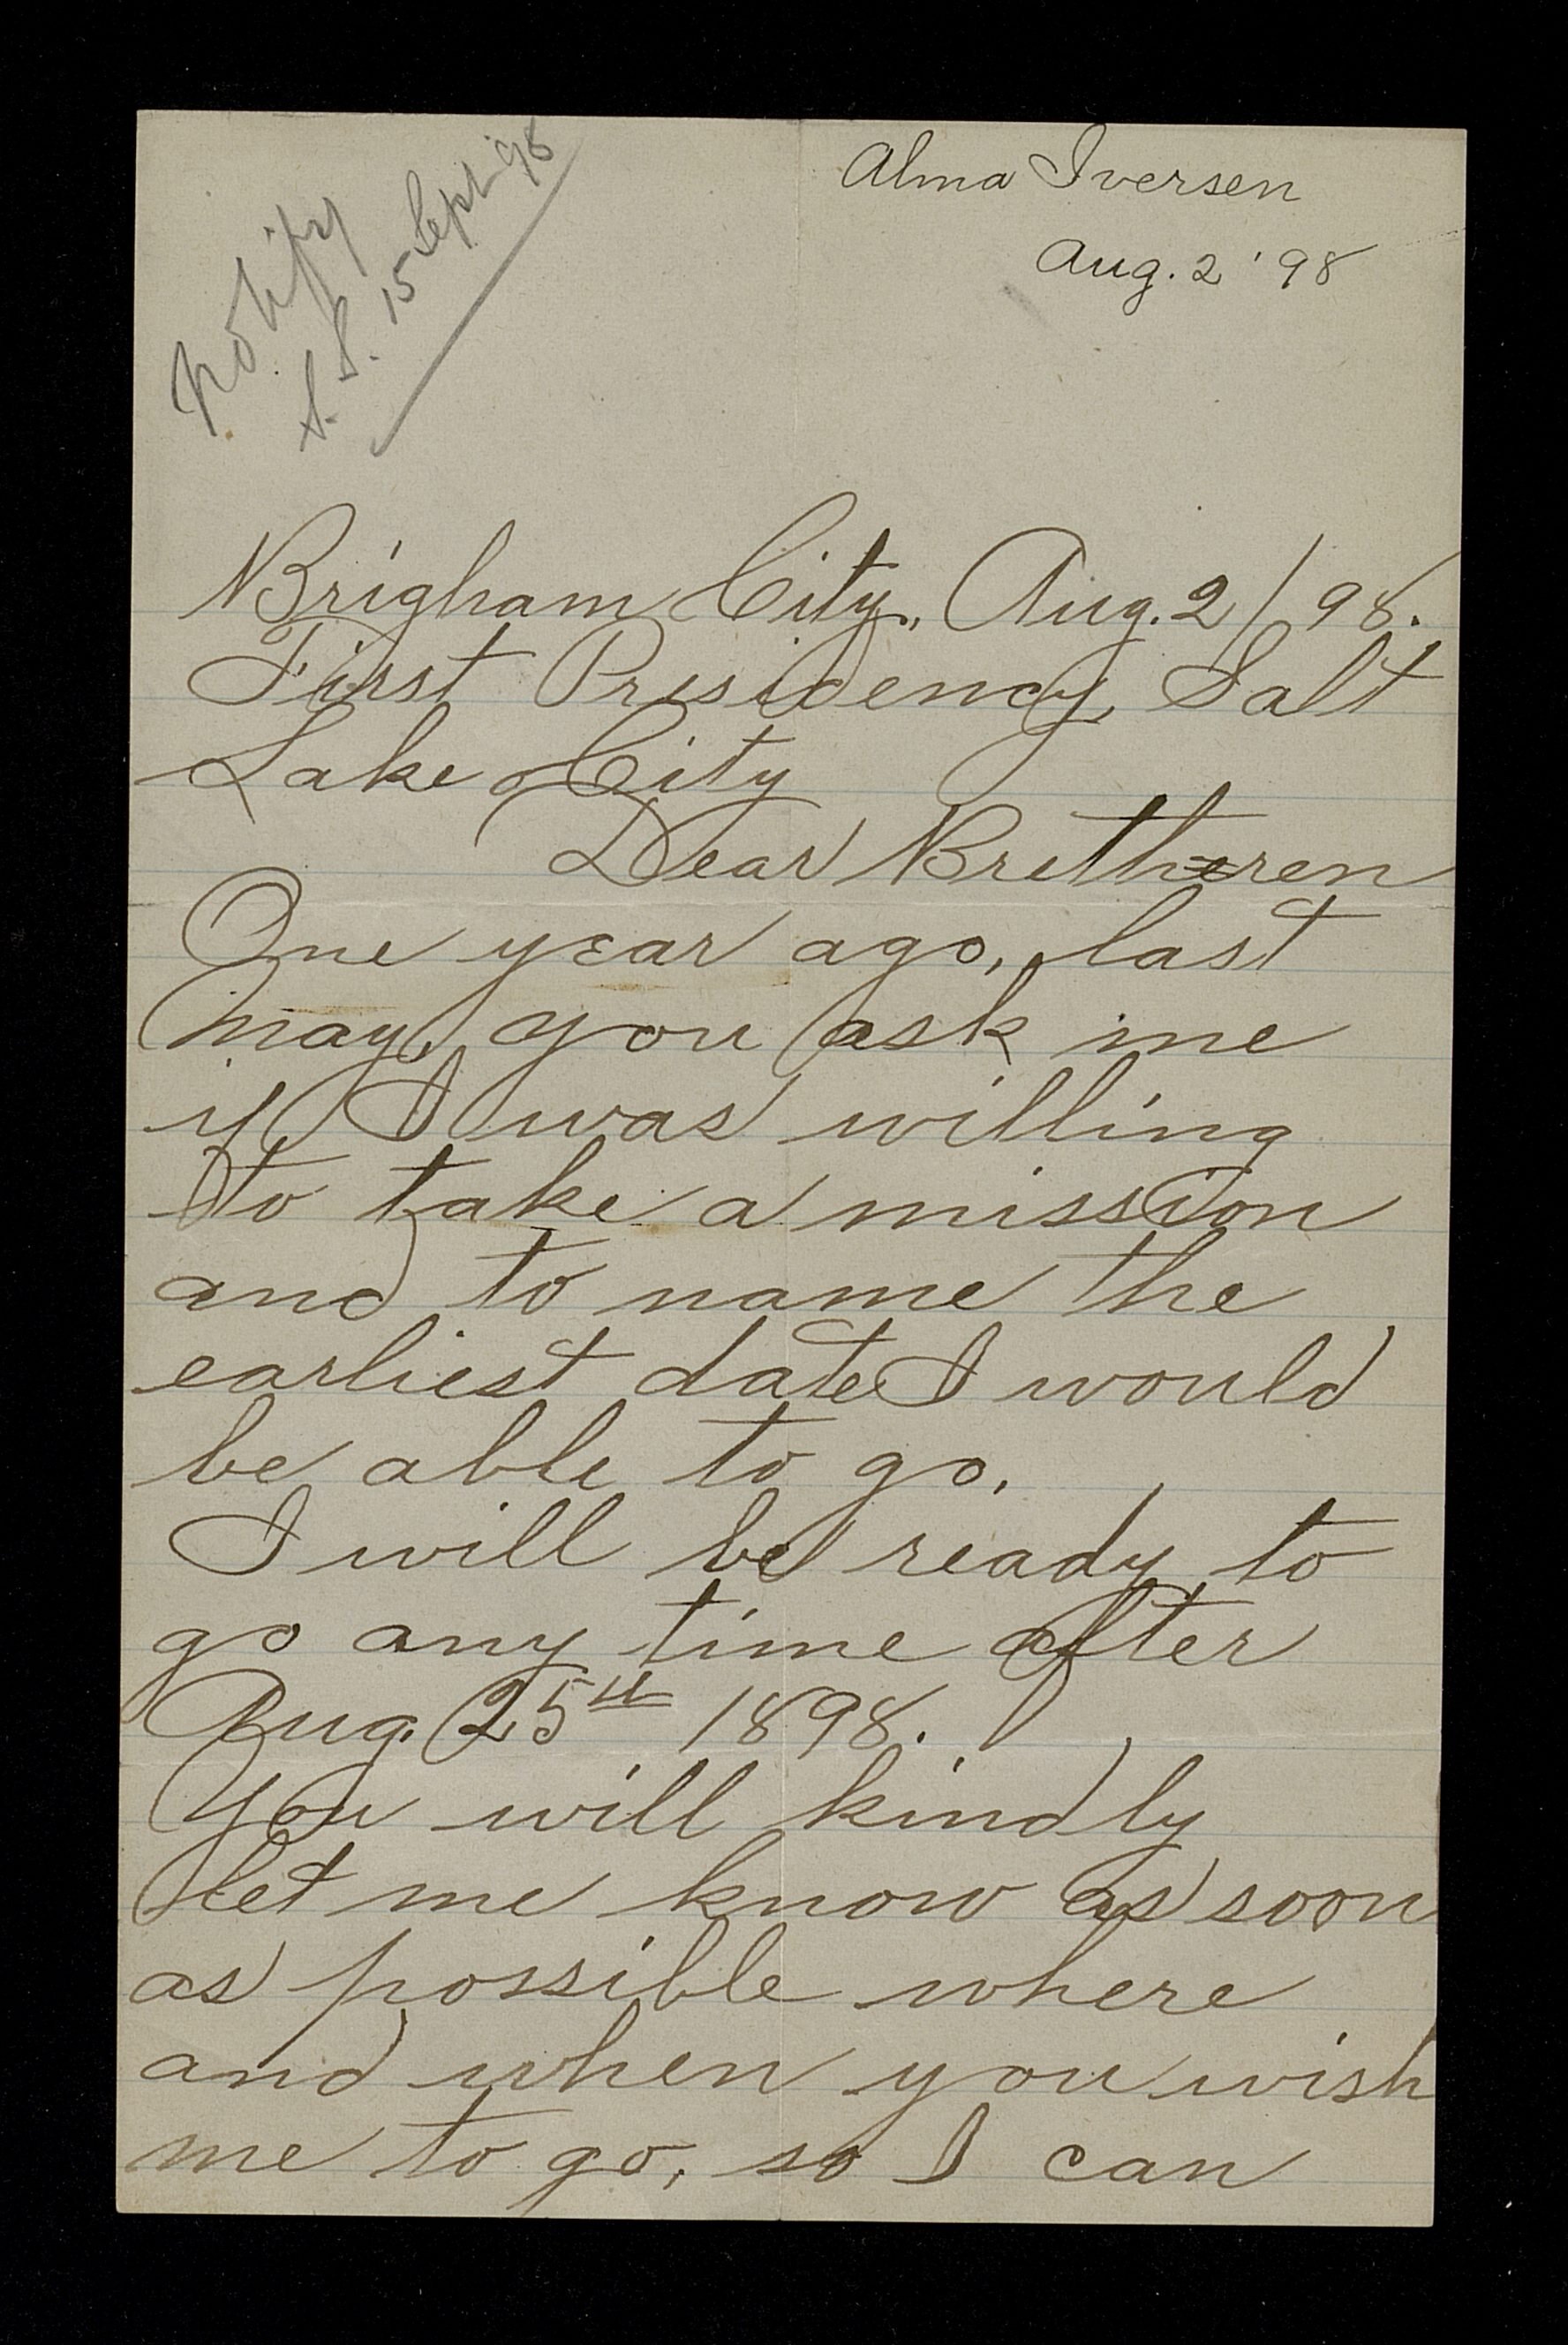 Notify
S. S. 15 Sept. '98
Alma Iversen
Aug. 2 '98
Brigham City, Aug. 2/98.
First Presidency, Salt
Lake City
Dear Bretheren
One year ago, last
May, you ask me
if I was willing
to take a mission
and to name the
earliest date I would
be able to go.
I will be ready to
go any time after
Aug. 25th 1898.
You will kindly
let me know as soon
as possible where
and when you wish
me to go, so I can